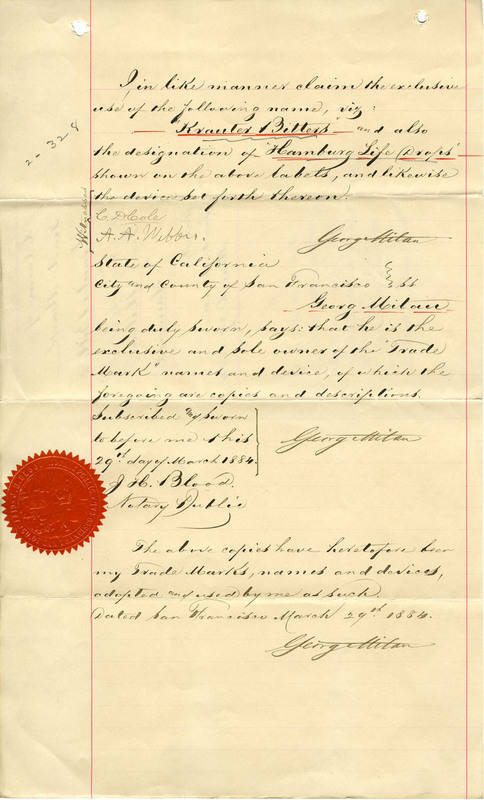 I, in like manner claim the exclusive
use of the following name, viz:
"Krauter Bitters" and also
the designation of "Hamburg Life Drops"
shown on the above labels, and likewise
the device set forth thereon.
Witnesses
C. D. Cole
A. A. Webber.
George Milau
State of California
City and County of San Francisco } ss
Georg Milau
being duly sworn, says: that he is the
exclusive and sole owner of the "Trade
Mark" names and device, of which the
foregoing are copies and descriptions.
Subscribed and sworn
to before me this
29th day of March 1884.
George Milau
J. H. Blood.
Notary Public
The above copies have heretofore been
my Trade Marks, names and devices,
adopted and used by me as such
Dated San Francisco March 29th 1884.
George Milau
2-328